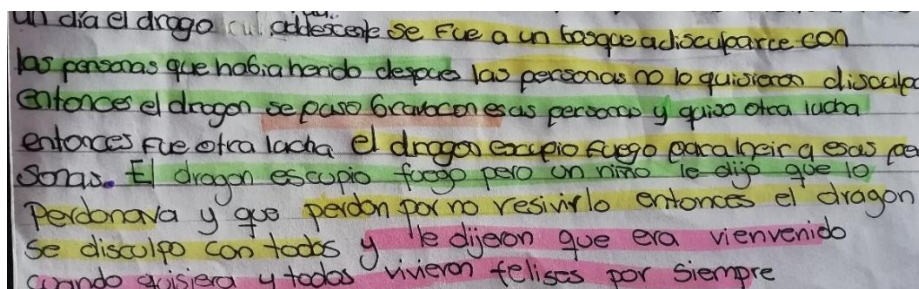 un dia el drago adolescente se fue a un bosque a disculparce con
las personas que habia herido despues las personas no lo quisieron disculpa
entonces el dragon se puso bravo con esas personas y quiso otra lucha
entonces fue otra lucha el dragon excupio fuego para herir a esas pe
sonas. El dragon escupio fuego pero un niño le dijo que lo
perdonava y que perdon por no resivirlo entonces el dragon
se disculpo con todos y le dijeron que era vienvenido
cuando quisiera y todos vivieron felises por siempre